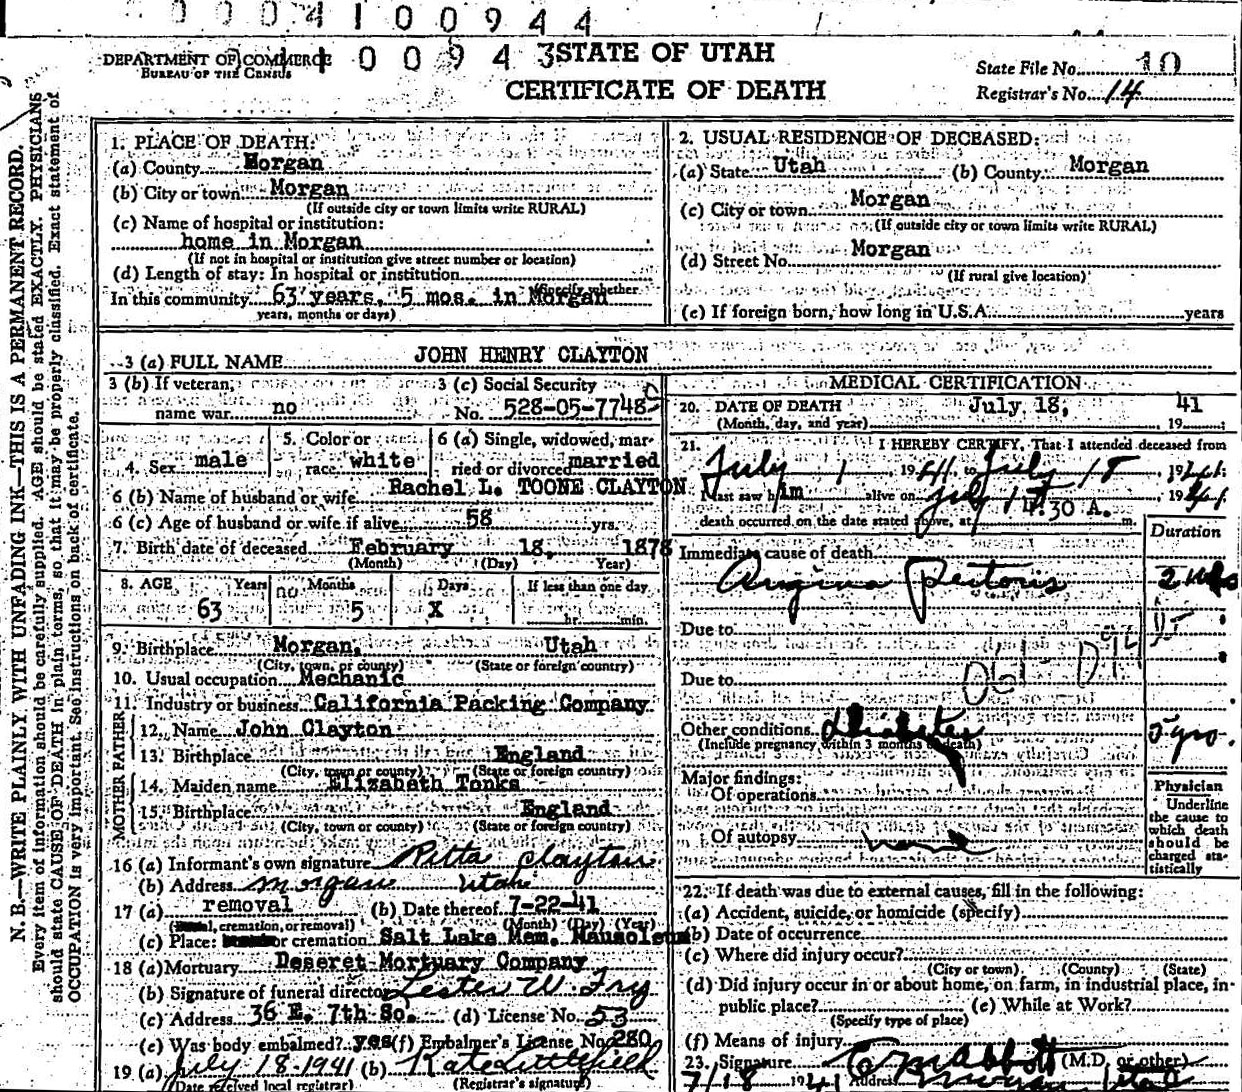 0 0 0 4 1 0 0 9 4 4
DEPARTMENT OF COMMERCE
BUREAU OF THE CENSUS
0 0 9 4 3
STATE OF UTAH
CERTIFICATE OF DEATH
State File No. 10
Registrar's No. 14
N. B.—WRITE PLAINLY WITH UNFADING INK—THIS IS A PERMANENT RECORD.
Every item of information should be carefully supplied. AGE should be stated EXACTLY. PHYSICIANS
should state CAUSE OF DEATH in plain terms, so that it may be properly classified. Exact statement of
OCCUPATION is very important. See instructions on back of certificate.
1. PLACE OF DEATH:
(a) County Morgan
(b) City or town Morgan
(If outside city or town limits write RURAL)
(c) Name of hospital or institution:
home in Morgan
(If not in hospital or institution give street number or location)
(d) Length of stay: In hospital or institution
(Specify whether
In this community 63 years, 5 mos. in Morgan
years, months or days)
2. USUAL RESIDENCE OF DECEASED:
(a) State Utah (b) County Morgan
(c) City or town Morgan
(If outside city or town limits write RURAL)
(d) Street No. Morgan
(If rural give location)
(e) If foreign born, how long in U.S.A. years
3 (a) FULL NAME JOHN HENRY CLAYTON
3 (b) If veteran, name war no
3 (c) Social Security No. 528-05-7748
4. Sex male
5. Color or race white
6 (a) Single, widowed, married or divorced married
6 (b) Name of husband or wife Rachel L. TOONE CLAYTON
6 (c) Age of husband or wife if alive 58 yrs.
7. Birth date of deceased February 18, 1878
(Month) (Day) Year)
8. AGE Years Months Days If less than one day
63 5 X hr. min.
9. Birthplace Morgan, Utah
(City, town, or county) (State or foreign country)
10. Usual occupation Mechanic
11. Industry or business California Packing Company
FATHER
12. Name John Clayton
13. Birthplace England
(City, town or county) (State or foreign country)
MOTHER
14. Maiden name Elizabeth Tonks
15. Birthplace England
(City, town or county) (State or foreign country)
16 (a) Informant's own signature Clayton
(b) Address Morgan Utah
17 (a) removal (b) Date thereof 7-22-41
cremation, or removal) (Month) (Day) (Year)
(c) Place: or cremation Salt Lake Mem. Mausoleum
18 (a) Mortuary Deseret Mortuary Company
(b) Signature of funeral director Lester W. Fry
(c) Address 36 E. 7th So. (d) License No. 53
(e) Was body embalmed? yes (f) Embalmer's License No. 280
19 (a) July 18-1941 (b) Kate Littlefield
(Date received local registrar) (Registrar's signature)
MEDICAL CERTIFICATION
20. DATE OF DEATH July 18, 19 41
(Month, day, and year)
21. I HEREBY CERTIFY, That I attended deceased from
July 1, 1941, to July 18, 1941
I last saw him alive on July 1941
death occurred on the date stated above, at 4:30 A. m.
Duration
Immediate cause of death
Angina Pectoris
Due to
Due to
Other conditions Diabetes 5 yrs.
(Include pregnancy within 3 months of death)
Major findings:
Of operations
Of autopsy none
Physician
Underline
the cause to
which death
should be
charged sta-
tistically
22. If death was due to external causes, fill in the following:
(a) Accident, suicide, or homicide (specify)
(b) Date of occurrence
(c) Where did injury occur?
(City or town) (County) (State)
(d) Did injury occur in or about home, on farm, in industrial place, in
public place? (e) While at Work?
(Specify type of place)
(f) Means of injury
23. Signature Abbott (M.D. or other)
7/18 1941 Address Morgan